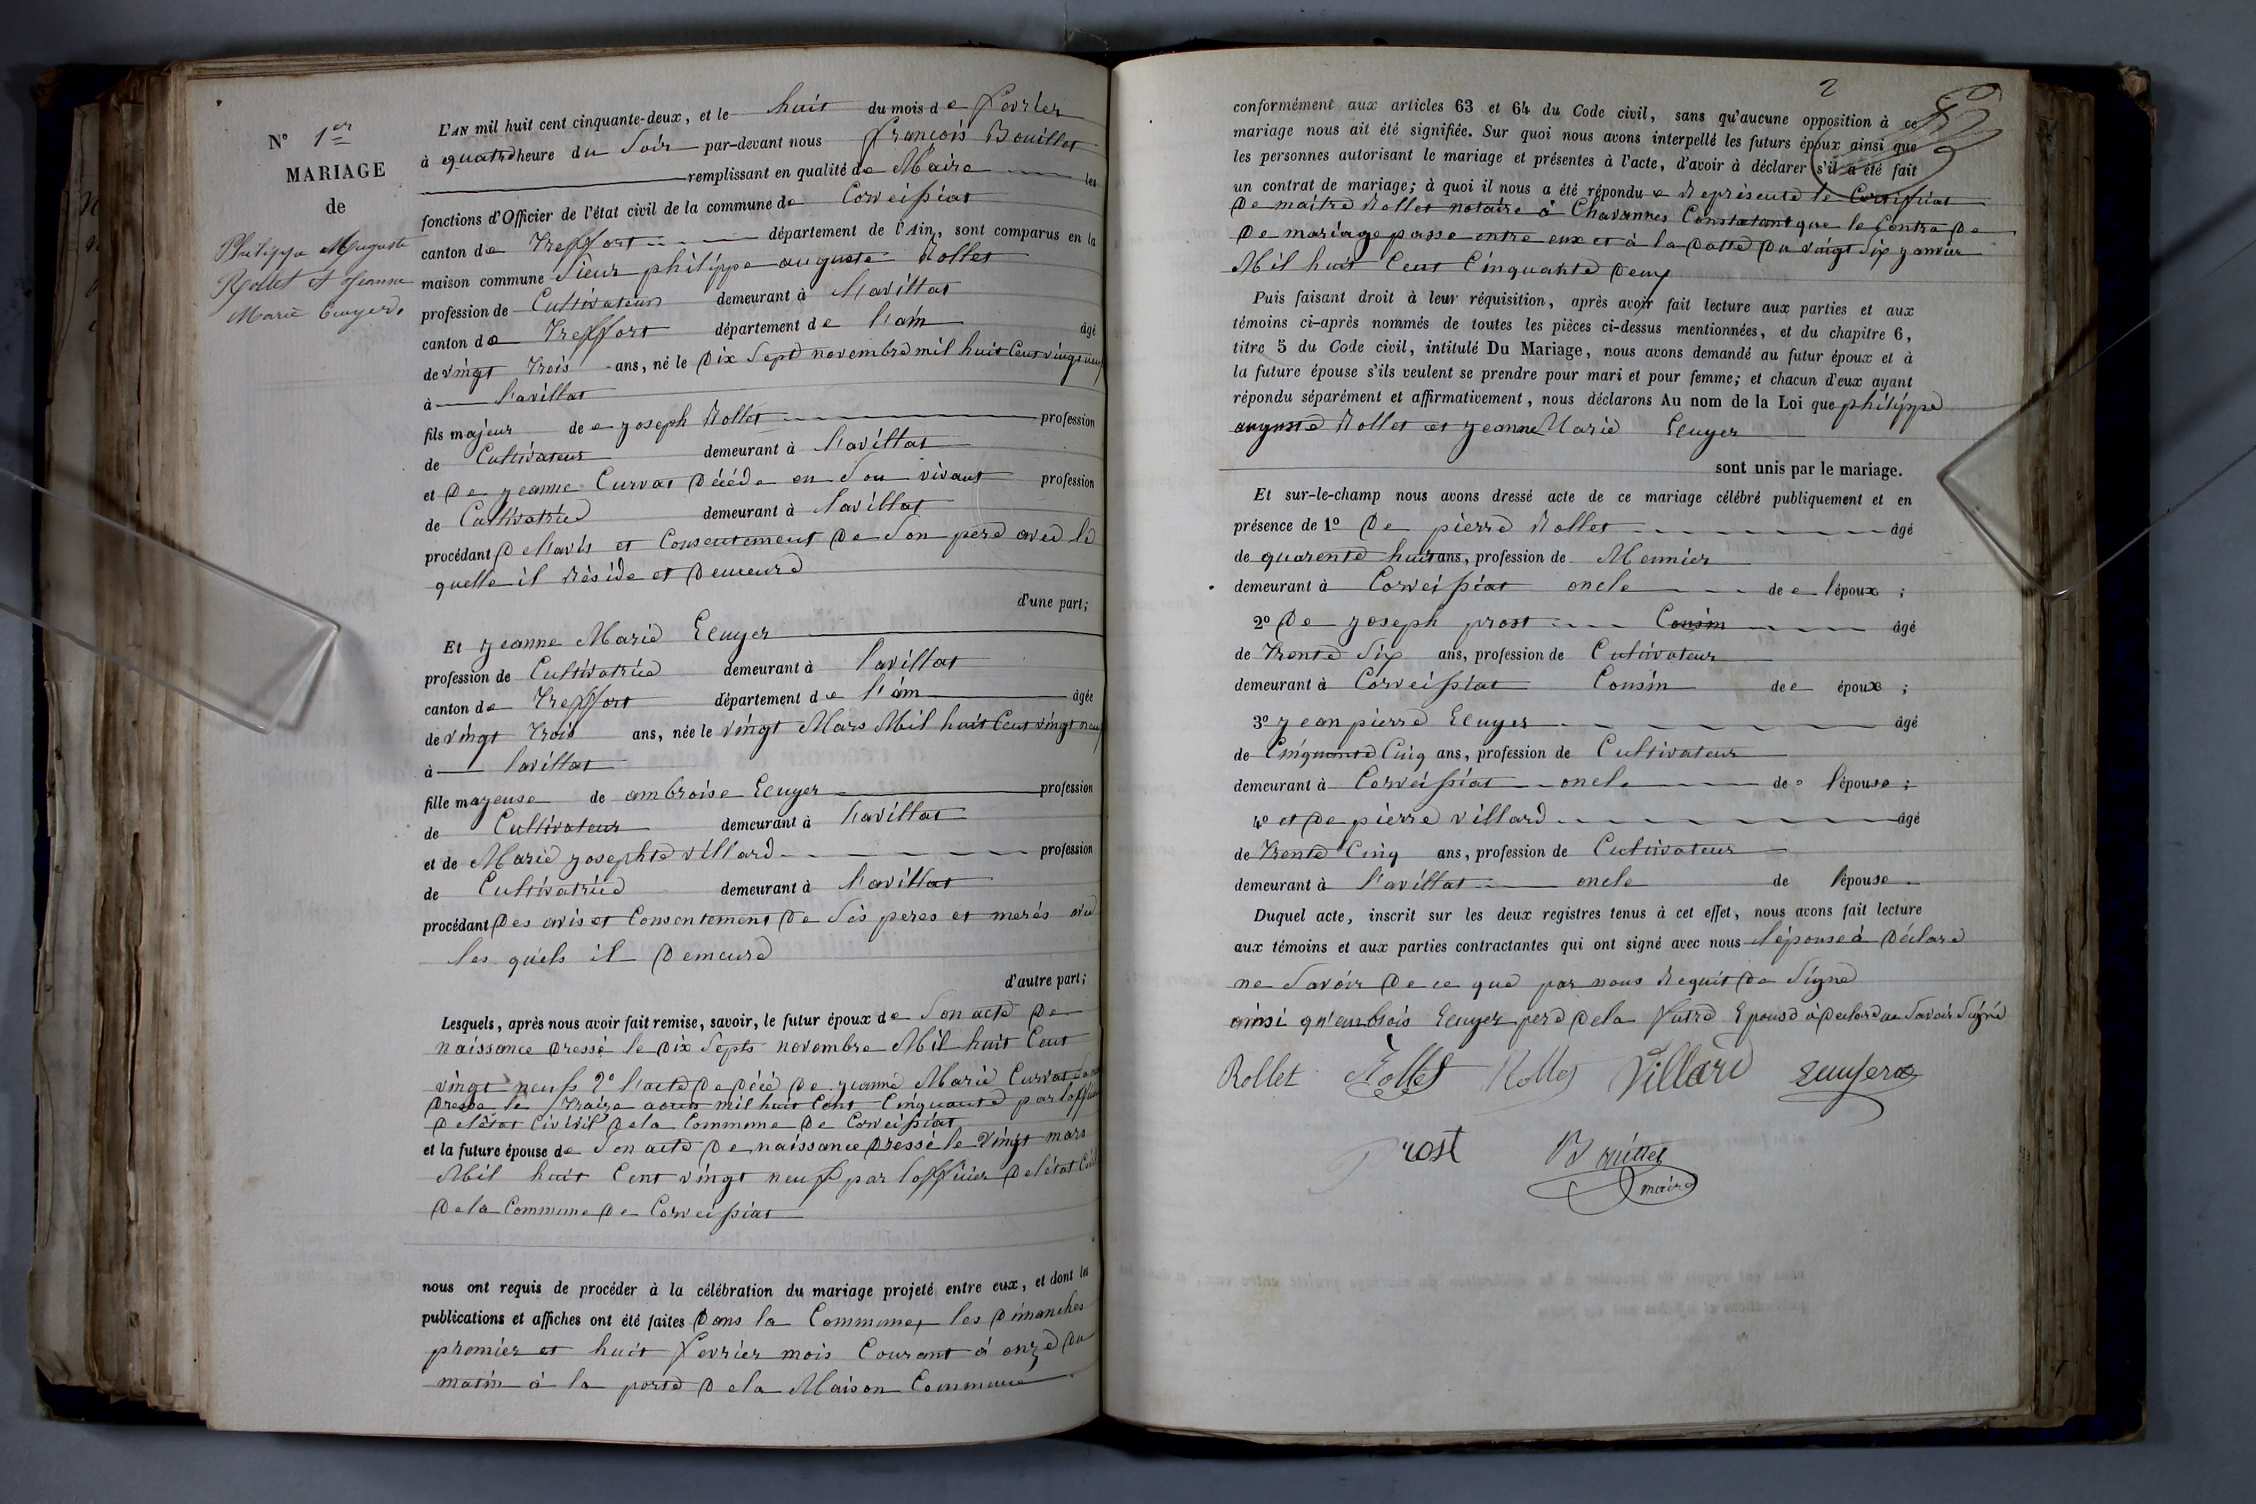 N° 1er
MARIAGE
de
Philippe Auguste
Rollet et Jeanne
Marie Ecuyer.
L'AN mil huit cent cinquante-deux, et le huit du mois de fevrier
à quatre heure du soir par-devant nous françois Bouillet
remplissant en qualité de Maire les
fonctions d'Officier de l'état civil de la commune de Corveissiat
canton de Treffort département de l'Ain, sont comparus en la
maison commune Sieur philippe auguste Rollet
profession de Cultivateur demeurant à Lavillat
canton de Treffort département de l'ain âgé
de vingt trois ans, né le dix sept novembre mil huit Cent vingt neuf
à Lavillat
fils majeur de joseph Rollet profession
de Cultivateur demeurant à Lavillat
et de jeanne Curvat décédé en son vivant profession
de Cultivatrice demeurant à lavillat
procédant de lavis et Consentement de son pere avec le
quelle il réside et demeure
d'une part;
Et jeanne Marie Ecuyer
profession de Cultivatrice demeurant à lavillat
canton de Treffort département de l'ain âgée
de vingt trois ans, née le vingt Mars Mil huit Cent vingt neuf
à lavillat
fille mageuse de ambroise Ecuyer profession
de Cultivateur demeurant à Lavillat
et de Marie josephte villard profession
de Cultivatrice demeurant à Lavillat
procédant des avis et Consentement de ses peres et merés avec
les quels il demeure
d'autre part;
Lesquels, après nous avoir fait remise, savoir, le futur époux de son acte de
naissance dressé le dix septs novembre Mil huit Cent
vingt neuf 2° l'acte de décé de jeanne Marie Curvat
dressé le traize aout mil huit Cent Cinquante par loffici
de létat Civivil de la Commune de Corveissiat
et la future épouse de son acte de naissance dressé le vingt mars
Mil huit Cent vingt neuf par lofficier de létat Civil
de la Commune de Corveissiat
nous ont requis de procéder à la célébration du mariage projeté entre eux, et dont les
publications et affiches ont été faites dans la Commune, les dimanches
premier et huit fevrier mois Courant à onze du
matin à la porte de la Maison Commune
2
conformément aux articles 63 et 64 du Code civil, sans qu'aucune opposition à ce
mariage nous ait été signifiée. Sur quoi nous avons interpellé les futurs époux ainsi que
les personnes autorisant le mariage et présentes à l'acte, d'avoir à déclarer s'il a été fait
un contrat de mariage; à quoi il nous a été répondu e Représente le Certificat
de maitre Rollet notaire à Chavannes Constatant que le Contra de
de mariage passe entre eux et à la datte du vingt six janvier
Mil huit Cent Cinquante deux
Puis faisant droit à leur réquisition, après avoir fait lecture aux parties et aux
témoins ci-après nommés de toutes les pièces ci-dessus mentionnées, et du chapitre 6,
titre 5 du Code civil, intitulé Du Mariage, nous avons demandé au futur époux et à
la future épouse s'ils veulent se prendre pour mari et pour femme; et chacun d'eux ayant
répondu séparément et affirmativement, nous déclarons Au nom de la Loi que philippe
auguste Rollet et jeanne Marie Ecuyer
sont unis par le mariage.
Et sur-le-champ nous avons dressé acte de ce mariage célébré publiquement et en
présence de 1° de pierre Rollet âgé
de quarente huit ans, profession de Meunier
demeurant à Corveissiat oncle de l'époux ;
2° de joseph prost Cousin âgé
de trente six ans, profession de Cultivateur
demeurant à Corveissiat Cousin de époux ;
3° jean pierre Ecuyer âgé
de Cinquante Cinq ans, profession de Cultivateur
demeurant à Corveissiat oncle de l'épouse ;
4° et de pierre villard âgé
de trente Cinq ans, profession de Cultivateur
demeurant à Lavillat oncle de l'épouse
Duquel acte, inscrit sur les deux registres tenus à cet effet, nous avons fait lecture
aux témoins et aux parties contractantes qui ont signé avec nous lépouse à déclaré
ne savoir de ce que par nous Requit de signé
ainsi qu'ambrois Ecuyer pere de la futre Epouse à declaré ne savoir signé
Rollet Rollet Rollet Villard Ecuyer
Prost Bouillet
maire